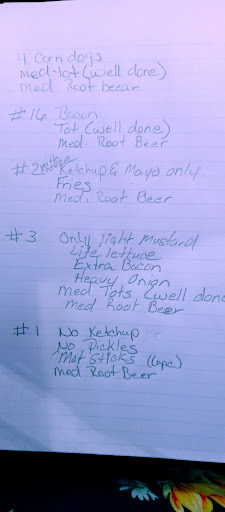 4 Corn dogs
med-tot (well done)
med. Root beear
#16 Bacon
Tot (well done)
Med. Root Beer
#2 Ketchup & Mayo only
Fries
Med. Root Beer
#3 Only light Mustard
Lite lettuce
Extra Bacon
Heavy Onion
Med Tots (well done
Med Root Beer
#1 No Ketchup
No Pickles
Mat Sticks (6pc)
Med Root Beer